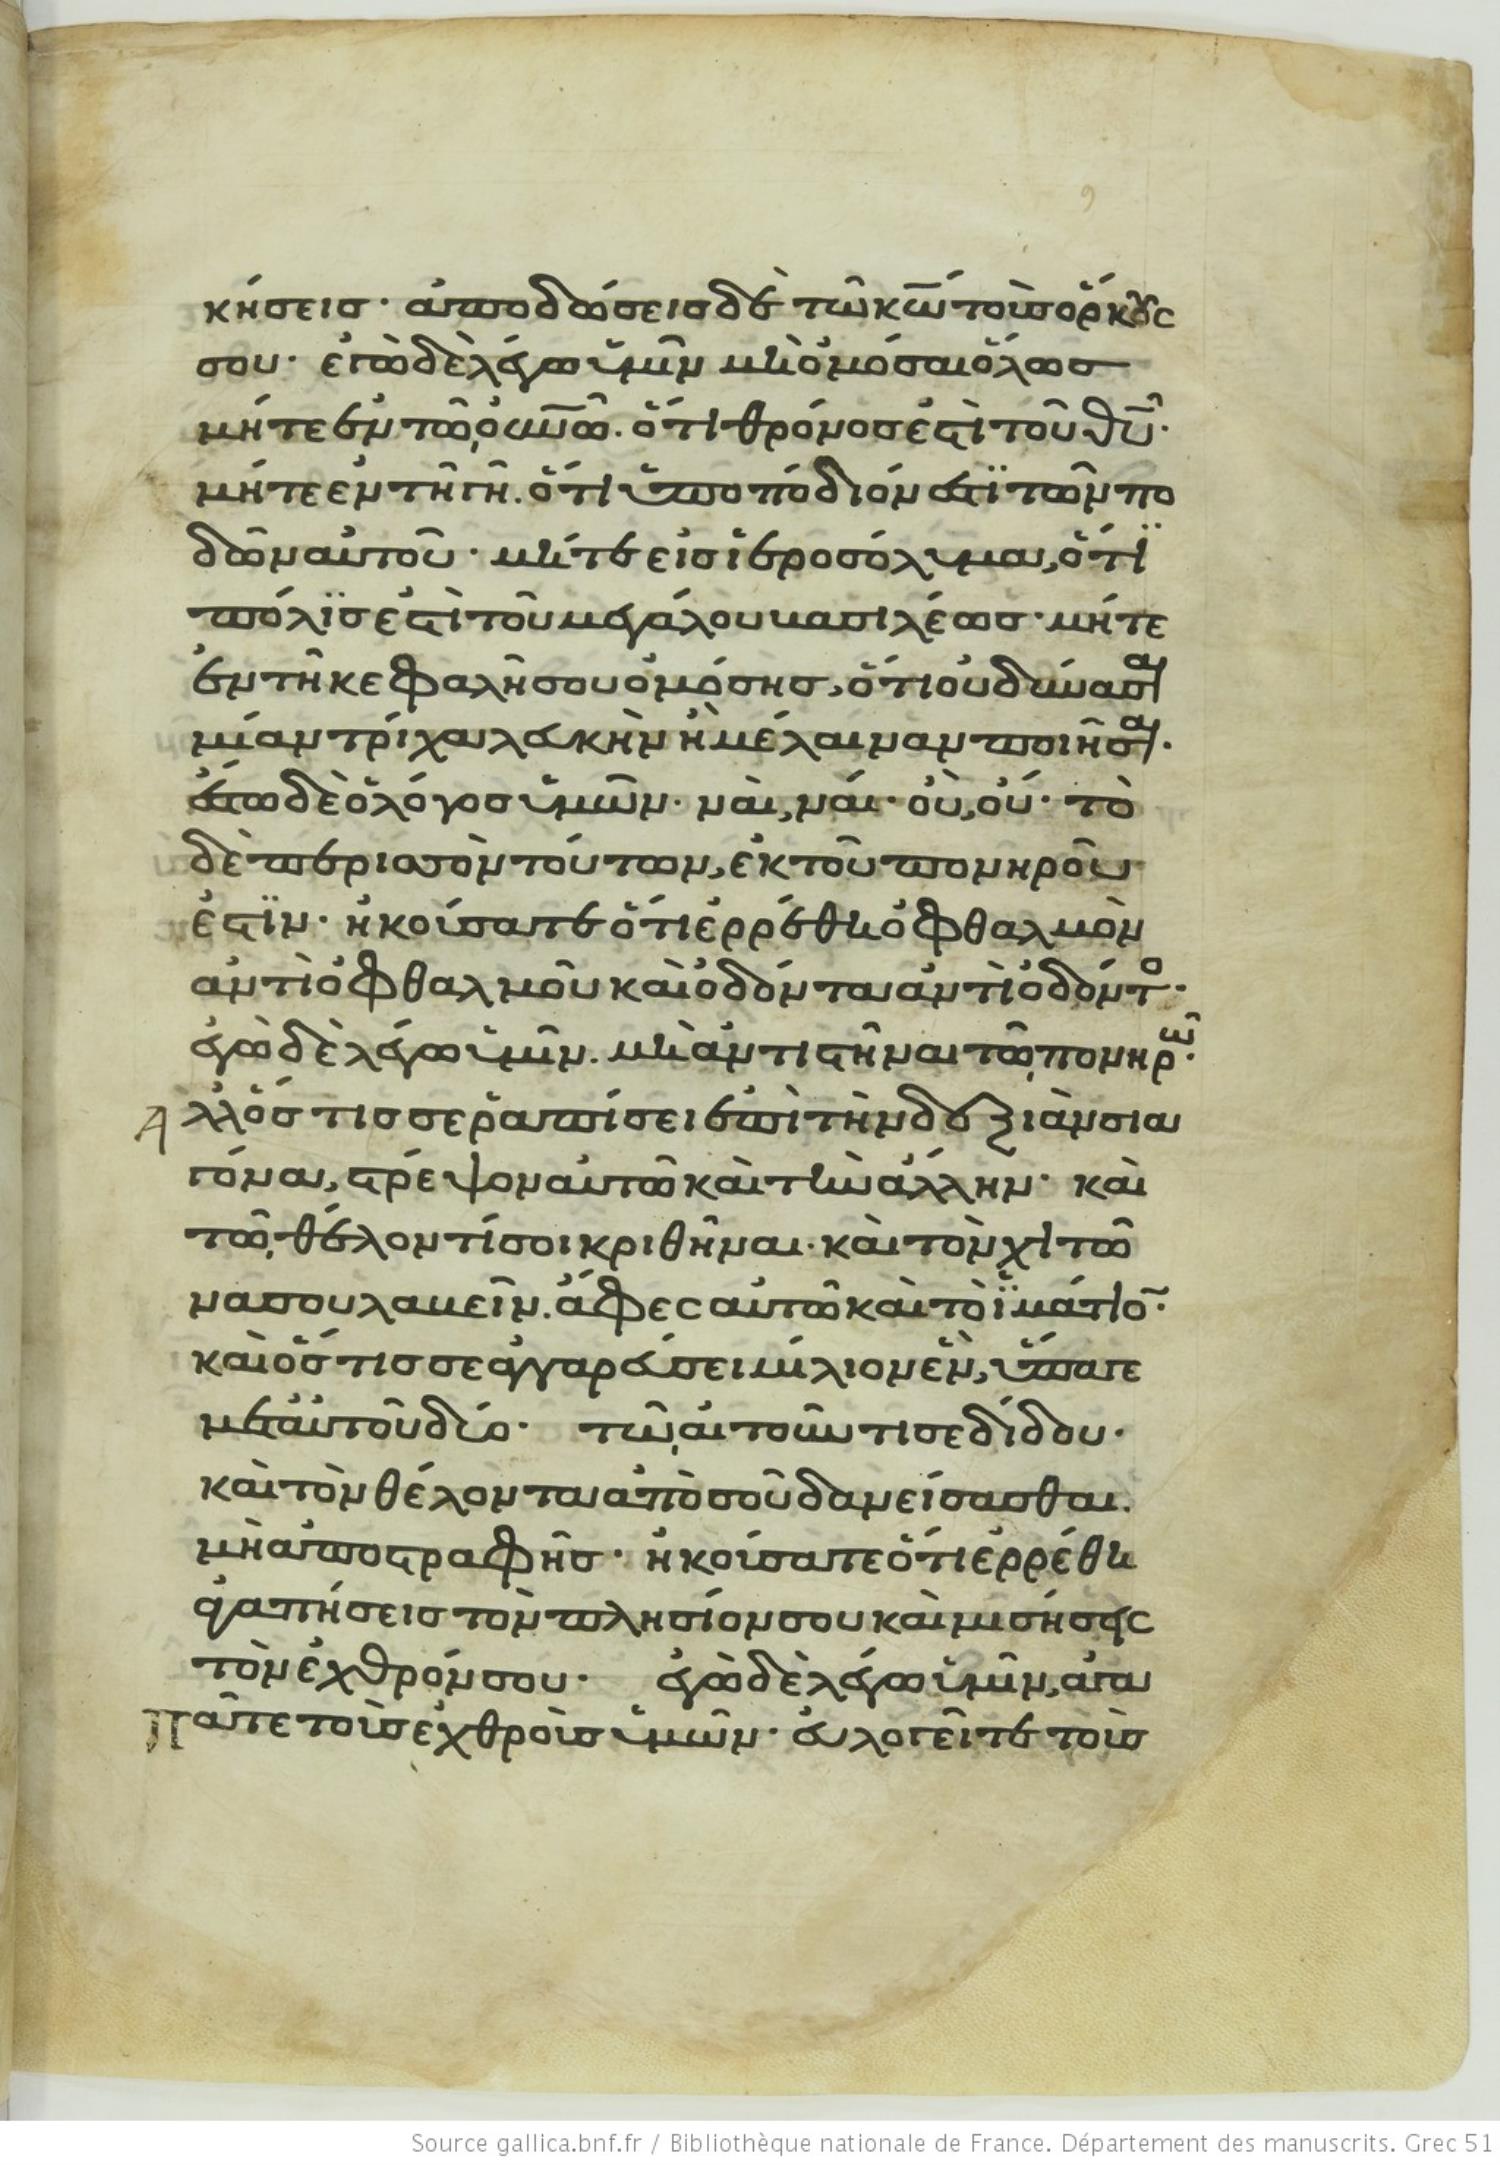 κήσεισ· ἀποδώσεισ δὲ τῶ κ̅ω̅ τοὺσ ὅρκουσ
σου· ἐγὼ δὲ λέγω ὑμῖν μὴ ὀμόσαι ὅλωσ
μήτε ἐν τῶ, ὀυ̅ν̅ῶ. ὅτι θρόνοσ ἐστὶ τοῦ θ̅υ̅·
μήτε ἐν τῆ γῆ. ὅτι ὑποπόδιόν ἐστϊ τῶν πο
δῶν αὐτοῦ· μήτε εἰσ ἱεροσόλυμα, ὅτϊ
πόλϊσ ἐστὶ τοῦ μεγάλου βασιλέωσ· μήτε
ἐν τῆ κεφαλῆ σου ὀμόσησ, ὅτι οὐ δύνασαι
μίαν τρίχα λευκὴν ἢ μέλαιναν ποιῆσαι·
ἔστω δὲ ὁ λόγοσ ὑμῶν· ναὶ, ναί· οὒ, οὔ· τὸ
δὲ περισσὸν τούτων, ἐκ τοῦ πονηροῦ
ἐστϊν· ἠκούσατε ὅτι ἐρρέθη ὀφθαλμὸν
ἀντὶ ὀφθαλμοῦ καὶ ὀδόντα ἀντὶ ὀδόντο·
ἐγὼ δὲ λέγω ὑμῖν. μὴ ἀντιστῆναι τῶ, πονηρῶ·
Ἀλλ ὅστισ σε ῥαπίσει ἐπὶ τὴν δεξιὰν σια
γόνα, στρέψον αὐτῶ καὶ τὴν ἄλλην· καὶ
τῶ, θέλοντί σοι κριθῆναι· καὶ τὸν χιτῶ
να σου λαβεῖν. ἄφεσ αὐτῶ καὶ τὸ ἱμάτιο̅·
καὶ ὅστισ σε ἀγγαρεύσει μίλιον ἓν, ὕπαγε
μετ ἀυτοῦ δύο· τῶ, αἰτοῦντι σε δίδου·
καὶ τὸν θέλοντα ἀπὸ σοῦ δανείσασθαι.
μὴ ἀποστραφῆσ· ἠκούσατε ὅτι ἐρρέθη
ἀγαπήσεισ τὸν πλησίον σου καὶ μισήσεισ
τὸν ἐχθρόν σου· ἐγὼ δὲ λέγω ὑμῖν, ἀγα
Πᾶτε τοὺσ ἐχθροὺσ ὑμῶν· εὐλογεῖτε τοὺσ
Source gallica.bnf.fr / Bibliothèque nationale de France. Département des manuscrits. Grec 51